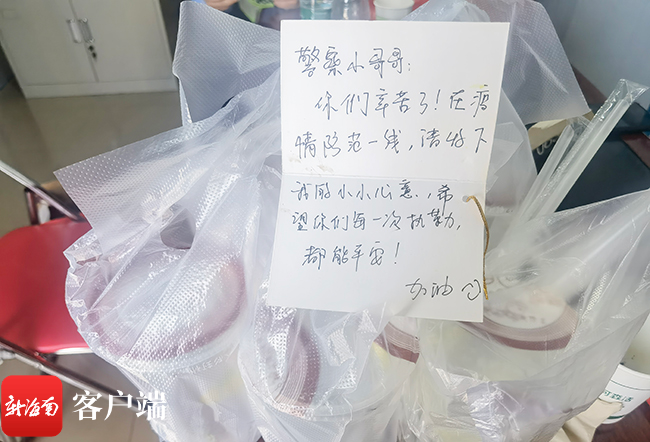 警察小哥哥：
你们辛苦了！在疫
情防范一线，请收下
我的小小心意，希
望你们每一次执勤，
都能平安！
加油
新海南 客户端